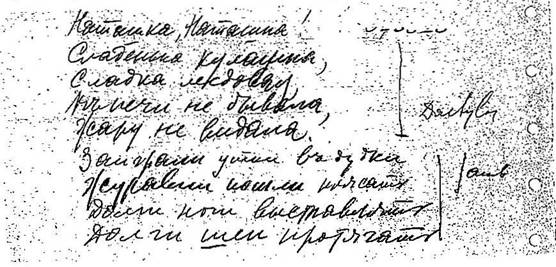 Наташка, Наташка!
Сладенька кулашка,
Сладка медовая,
В печи не бывала,
Жару не видала.
Заиграли утки в дудки
Журавли пошли плясать
Долги ноги выставлять
Долги шеи протягать